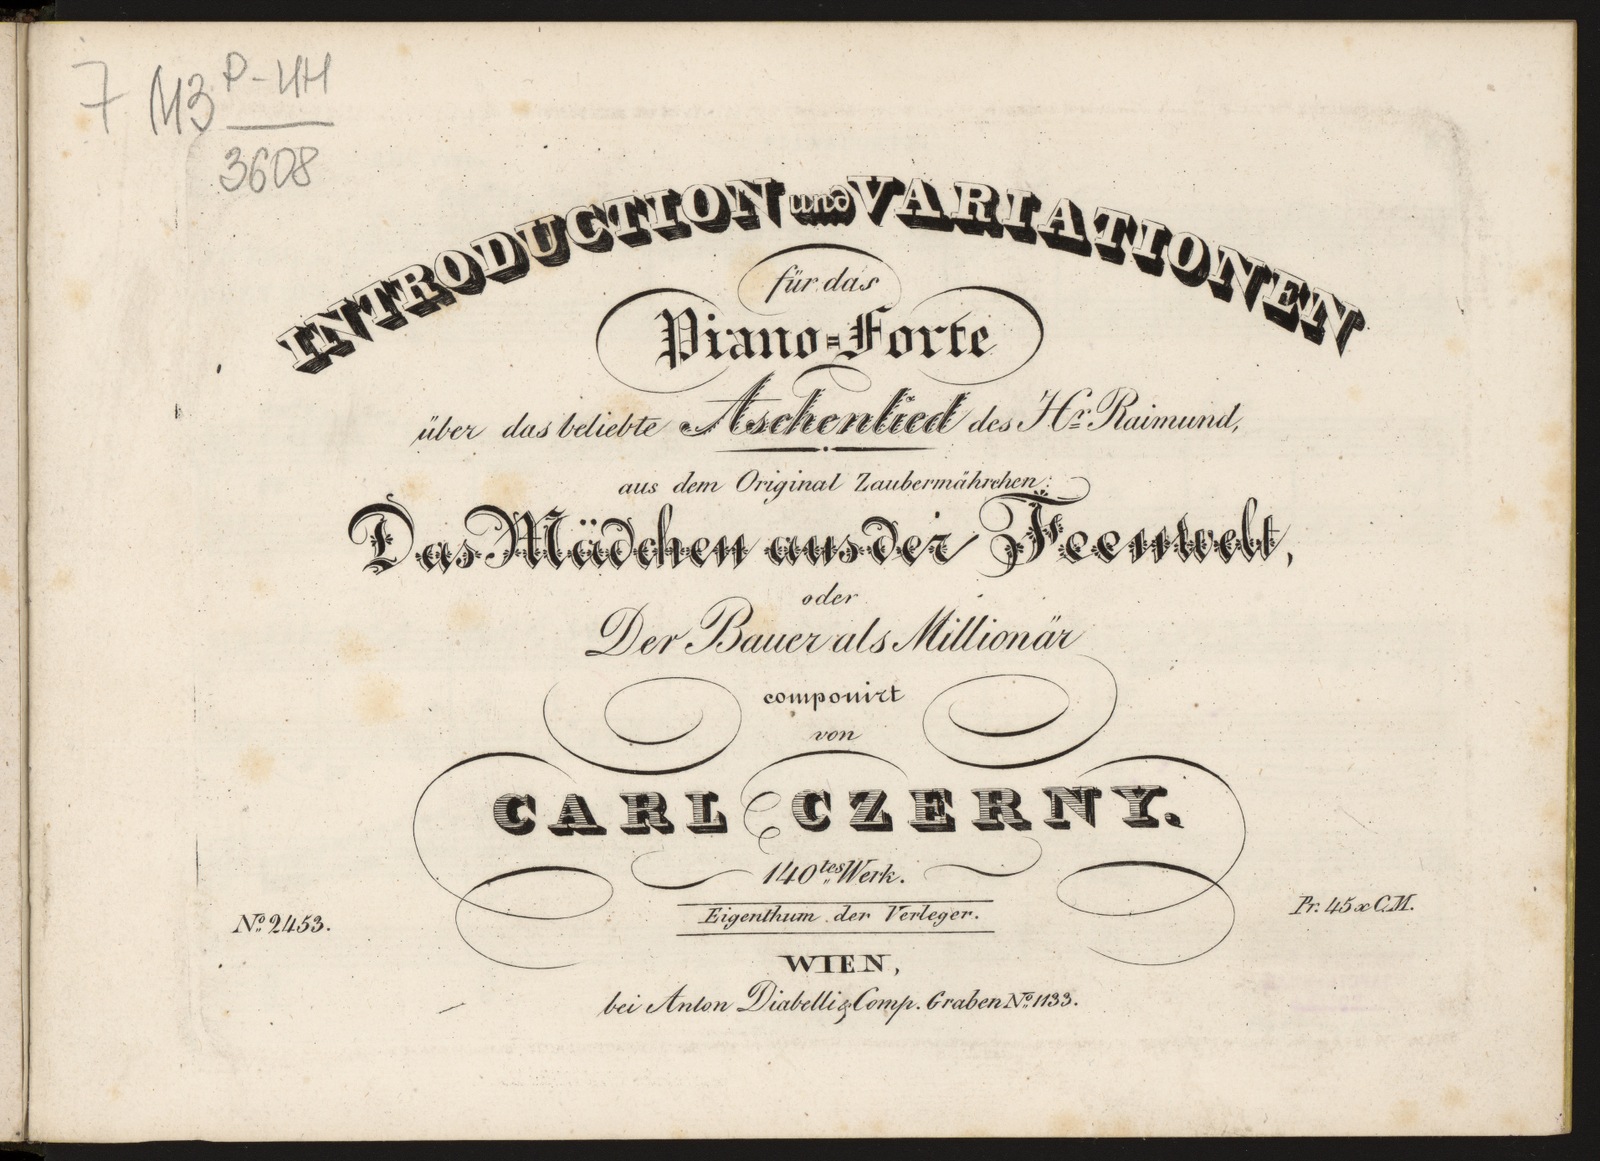 7 М3 Р-ЧН
3608
INTRODUCTION und VARIATIONEN
für das
Piano=Forte
über das beliebte Aschenlied des Hr. Raimund,
aus dem Original Zaubermährchen:
Das Mädchen aus der Feenwelt,
oder
Der Bauer als Millionär
componirt
von
CARL CZERNY.
140tes Werk.
Eigenthum der Verleger.
No. 2453.
Pr. 45 x C.M.
WIEN,
bei Anton Diabelli & Comp. Graben No. 1133.